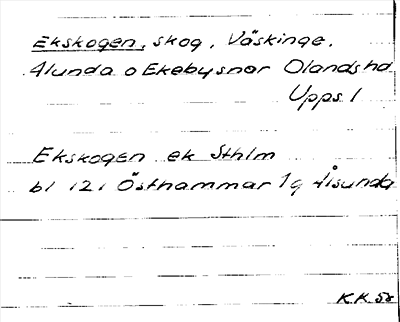 Ekskogen, skog, Väskinge,
Alunda o Ekebysnor Olands hd
Upps l
Ekskogen ek Sthlm
bl 121 Östhammar 1g Alsunda
K.K. 58